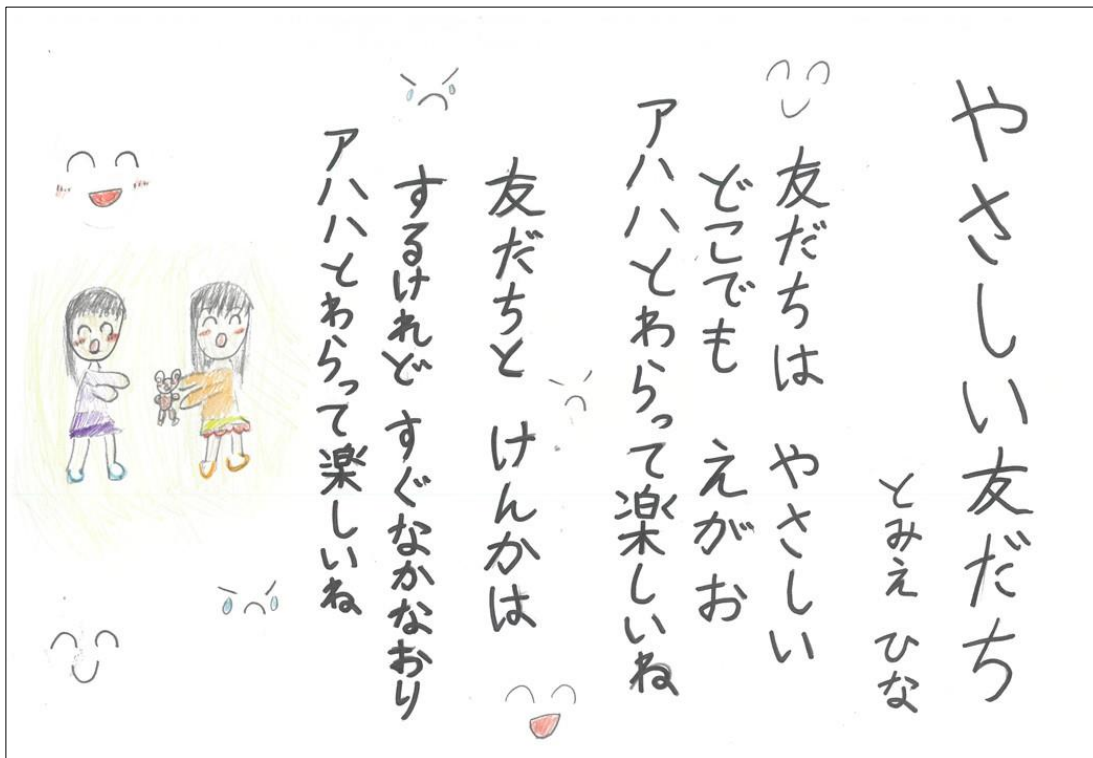 やさしい友だち
とみえ ひな
友だちは やさしい
どこでも えがお
アハハとわらって楽しいね
友だちと けんかは
するけれど すぐなかなおり
アハハとわらって楽しいね